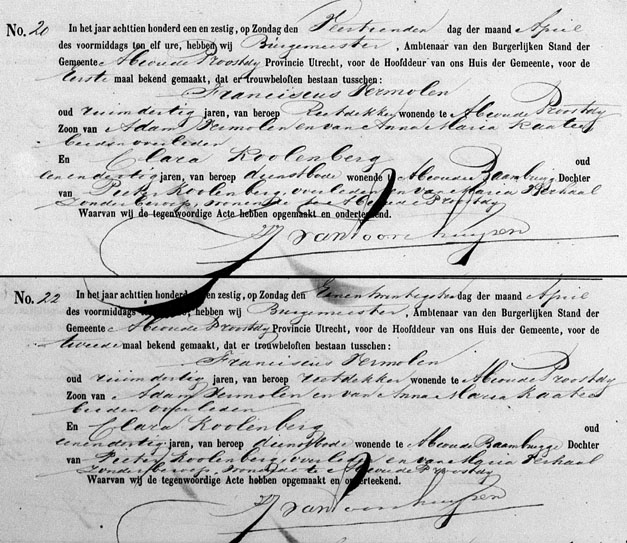 No. 20 In het jaar achttien honderd een en zestig, op Zondag den Veertienden dag der maand April
des voormiddags ten elf ure, hebben wij Burgemeester, Ambtenaar van den Burgerlijken Stand der
Gemeente Abcoude Proostdy Provincie Utrecht, voor de Hoofddeur van ons Huis der Gemeente, voor de
eerste maal bekend gemaakt, dat er trouwbeloften bestaan tusschen:
Franciscus Vermolen
oud ruim dertig jaren, van beroep Rietdekker wonende te Abcoude Proostdy
Zoon van Adam Vermolen en van Anna Maria Kaatee
beiden overleden
En Clara Koolenberg oud
eenendertig jaren, van beroep dienstbode wonende te Abcoude Baambrugge Dochter
van Pieter Koolenberg, overleden en van Maria Verhaal
Zonder beroep, wonende te Abcoude Proostdy
Waarvan wij de tegenwoordige Acte hebben opgemaakt en onderteekend.
van Voorthuijsen
No. 22 In het jaar achttien honderd een en zestig, op Zondag den Eenentwintigsten dag der maand April
des voormiddags ure, hebben wij Burgemeester, Ambtenaar van den Burgerlijken Stand der
Gemeente Abcoude Proostdy Provincie Utrecht, voor de Hoofddeur van ons Huis der Gemeente, voor de
tweede maal bekend gemaakt, dat er trouwbeloften bestaan tusschen:
Franciscus Vermolen
oud ruim dertig jaren, van beroep rietdekker wonende te Abcoude Proostdy
Zoon van Adam Vermolen en van Anna Maria Kaatee
beiden overleden
En Clara Koolenberg oud
eenendertig jaren, van beroep dienstbode wonende te Abcoude Baambrugge Dochter
van Pieter Koolenberg, overleden en van Maria Verhaal
Zonder beroep, wonende te Abcoude Proostdy
Waarvan wij de tegenwoordige Acte hebben opgemaakt en onderteekend.
van Voorthuijsen